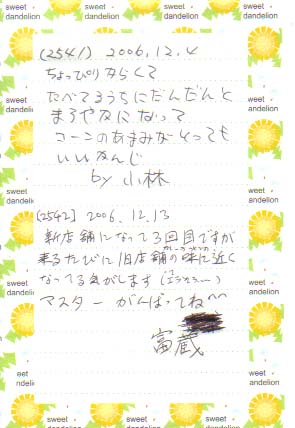 sweet dandelion
sweet dandelion
sweet dandelion
(2541) 2006.12.4
ちょっぴりからくて
たべてるうちにだんだんと
まろやかになって
コーンのあまみがとっても
いいかんじ
by 小林
(2542) 2006.12.13
新店舗になって3回目ですが
来るたびに旧店舗の味に近く
なってる気がします
マスター がんばってね^^
富蔵
sweet dandelion
sweet dandelion
sweet dandelion